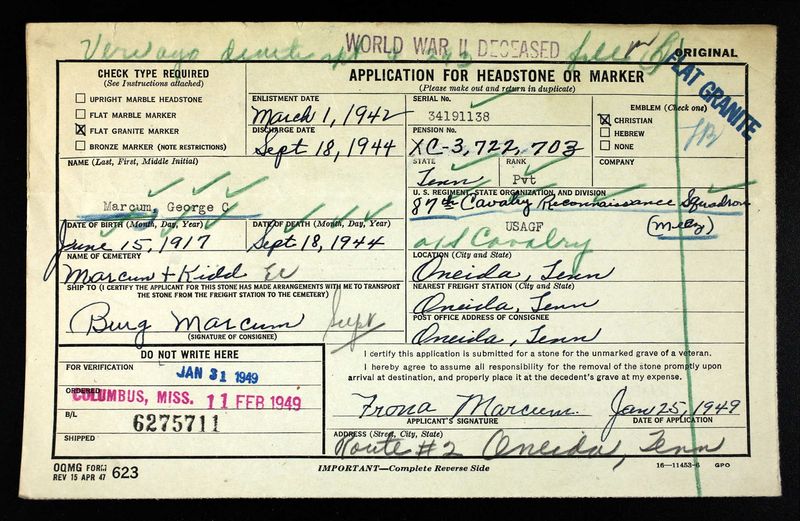 WORLD WAR II DECEASED
ORIGINAL
FLAT GRANITE
CHECK TYPE REQUIRED
(See Instructions attached)
☐ UPRIGHT MARBLE HEADSTONE
☐ FLAT MARBLE MARKER
☒ FLAT GRANITE MARKER
☐ BRONZE MARKER (NOTE RESTRICTIONS)
APPLICATION FOR HEADSTONE OR MARKER
(Please make out and return in duplicate)
ENLISTMENT DATE
March 1, 1942
DISCHARGE DATE
Sept 18, 1944
SERIAL No.
34191138
PENSION No.
XC-3,722,703
EMBLEM (Check one)
☒ CHRISTIAN
☐ HEBREW
☐ NONE
NAME (Last, First, Middle Initial)
Marcum, George C
STATE
Tenn
RANK
Pvt
COMPANY
U. S. REGIMENT, STATE ORGANIZATION, AND DIVISION
87th Cavalry Reconnaissance Squadron
(Mecz)
USAGF
Cavalry
DATE OF BIRTH (Month, Day, Year)
June 15, 1917
DATE OF DEATH (Month, Day, Year)
Sept 18, 1944
NAME OF CEMETERY
Marcum + Kidd
LOCATION (City and State)
Oneida, Tenn
SHIP TO (I CERTIFY THE APPLICANT FOR THIS STONE HAS MADE ARRANGEMENTS WITH ME TO TRANSPORT
THE STONE FROM THE FREIGHT STATION TO THE CEMETERY)
Burg Marcum
Supt
(SIGNATURE OF CONSIGNEE)
NEAREST FREIGHT STATION (City and State)
Oneida, Tenn
POST OFFICE ADDRESS OF CONSIGNEE
Oneida, Tenn
DO NOT WRITE HERE
FOR VERIFICATION
JAN 31 1949
ORDERED
COLUMBUS, MISS. 11 FEB 1949
B/L
6275711
SHIPPED
I certify this application is submitted for a stone for the unmarked grave of a veteran.
I hereby agree to assume all responsibility for the removal of the stone promptly upon
arrival at destination, and properly place it at the decedent's grave at my expense.
Frona Marcum. Jan 25, 1949
APPLICANT'S SIGNATURE DATE OF APPLICATION
ADDRESS (Street, City, State)
Route #2 Oneida, Tenn
OQMG FORM
REV 15 APR 47 623
IMPORTANT—Complete Reverse Side
16—11453-6 GPO